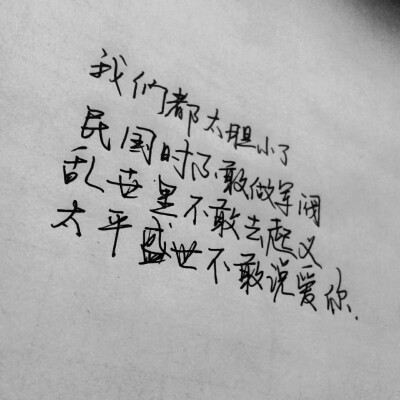 我们都太胆小了
民国时不敢做军阀
乱世里不敢去起义
太平盛世不敢说爱你.